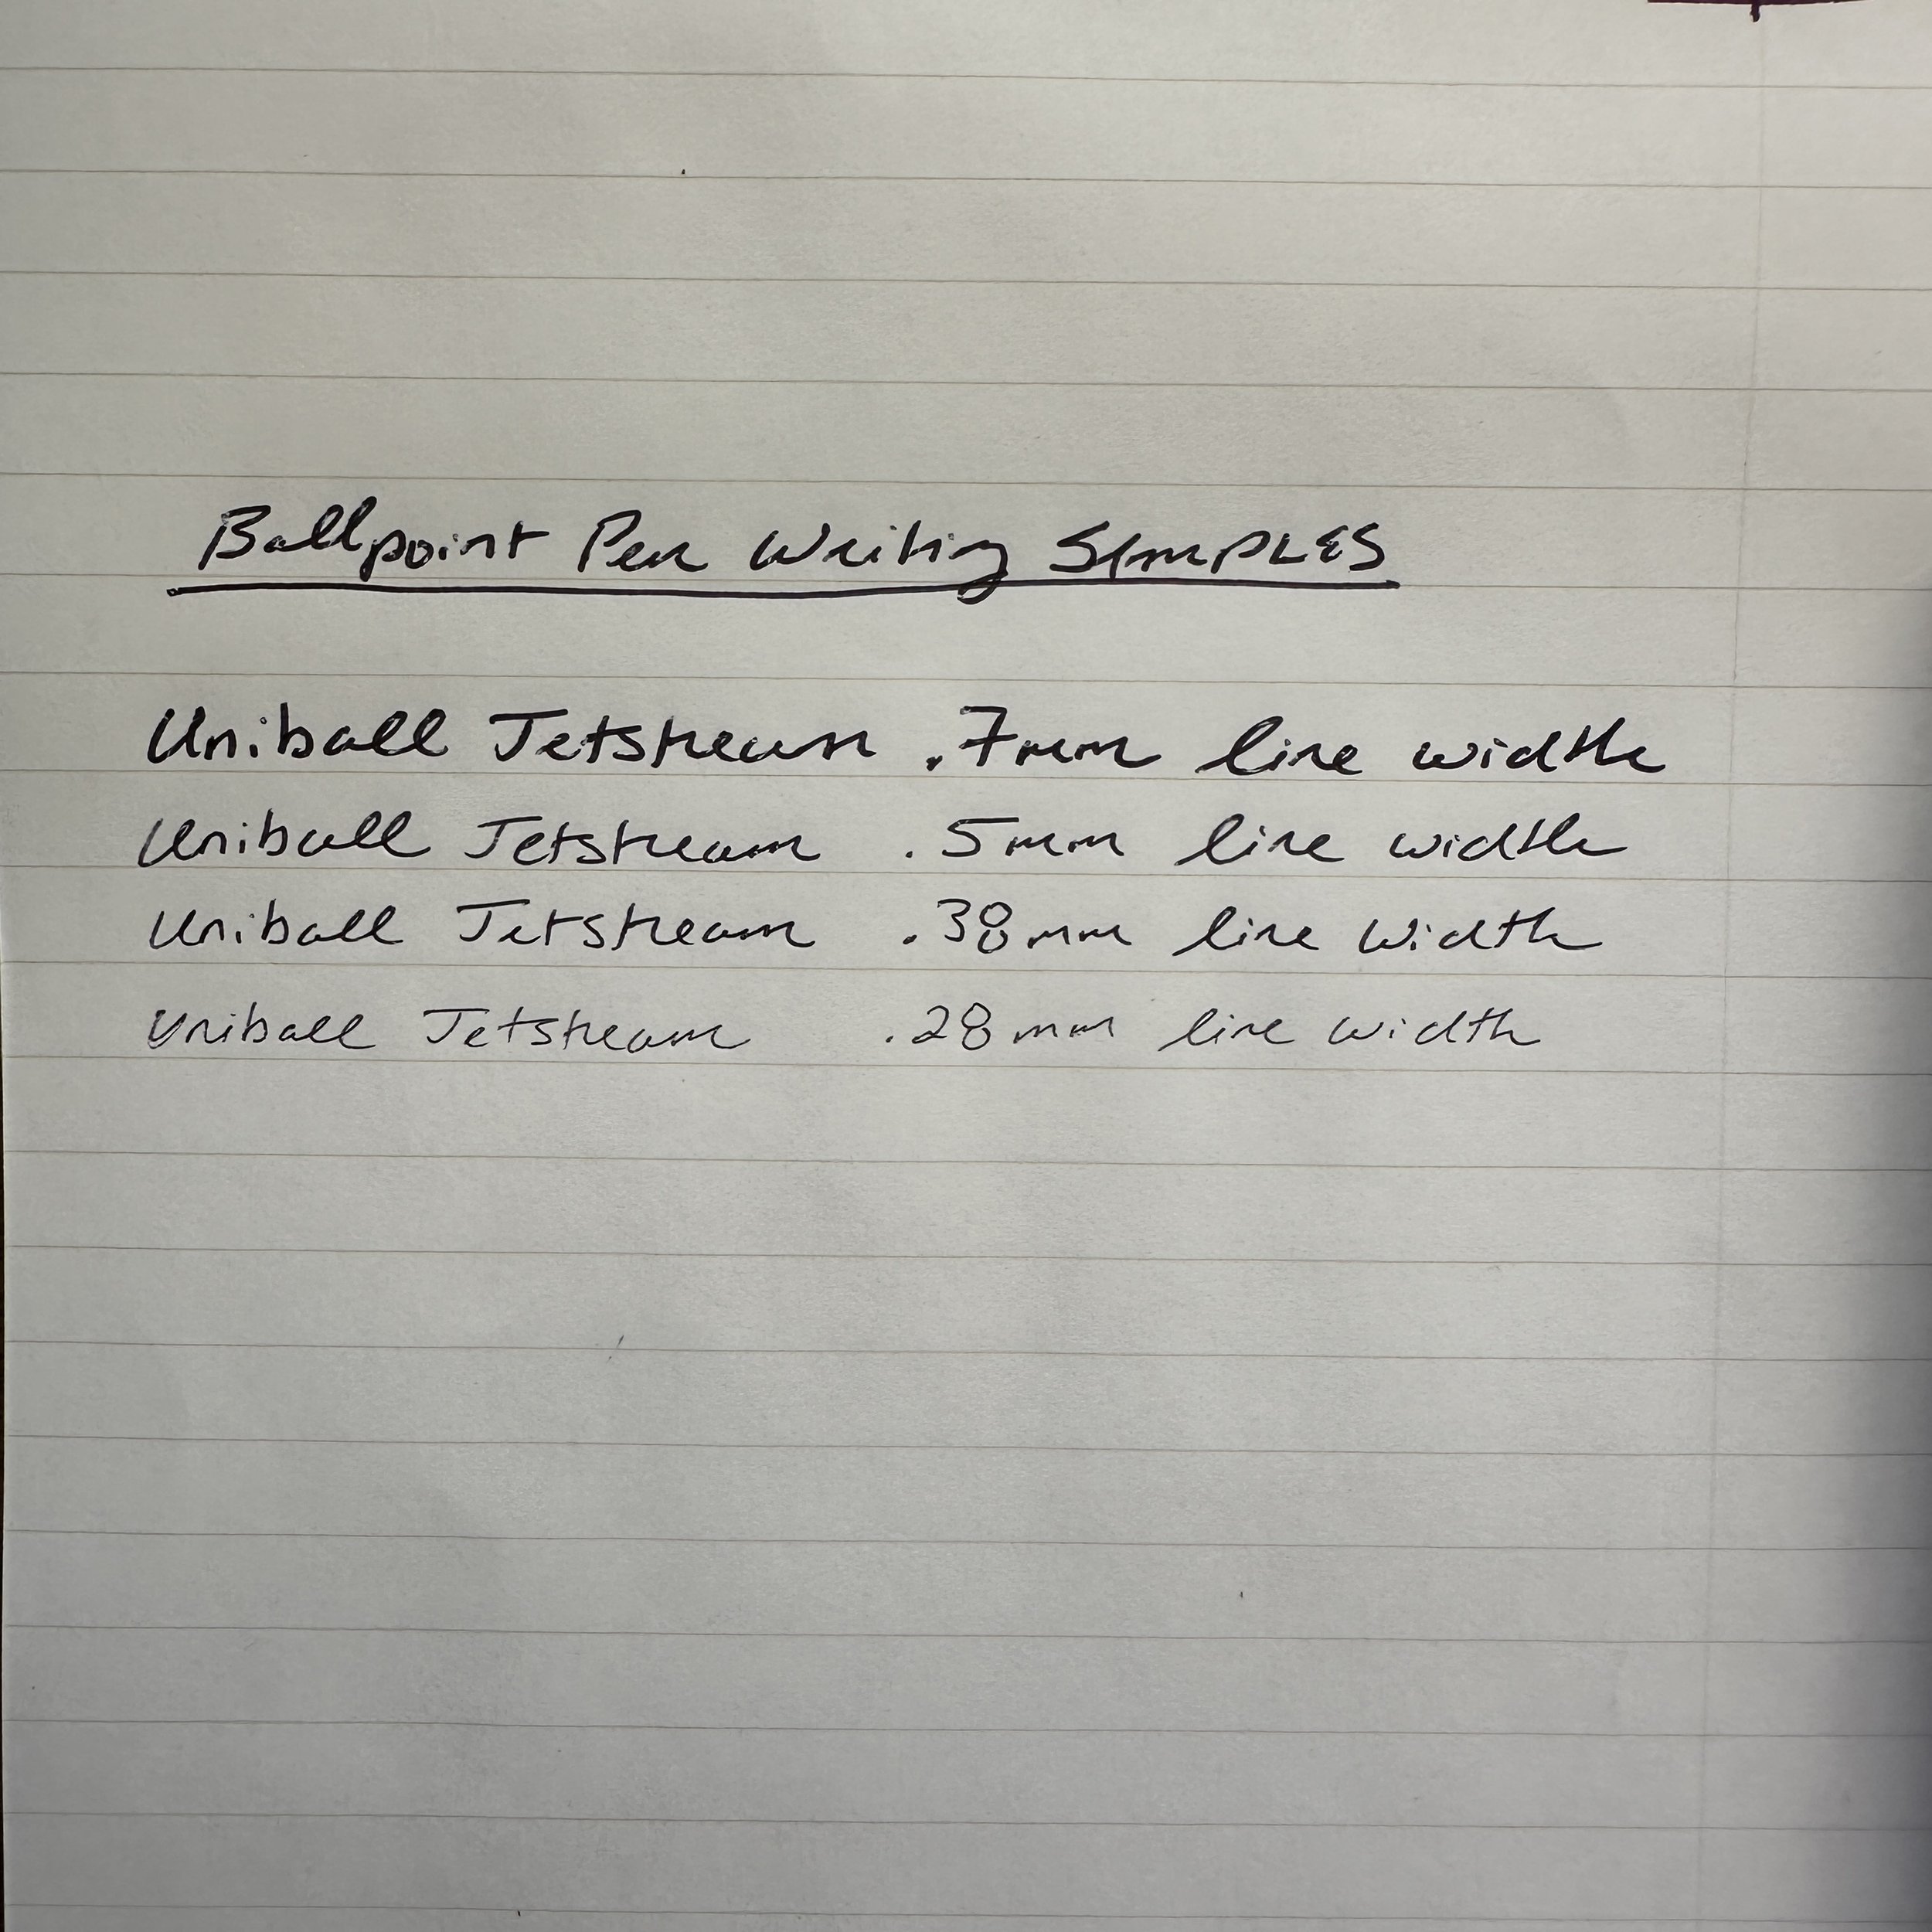 Ballpoint Pen Writing SAMPLES
Uniball Jetstream .7mm line width
Uniball Jetstream .5mm line width
Uniball Jetstream .38mm line width
Uniball Jetstream .28mm line width